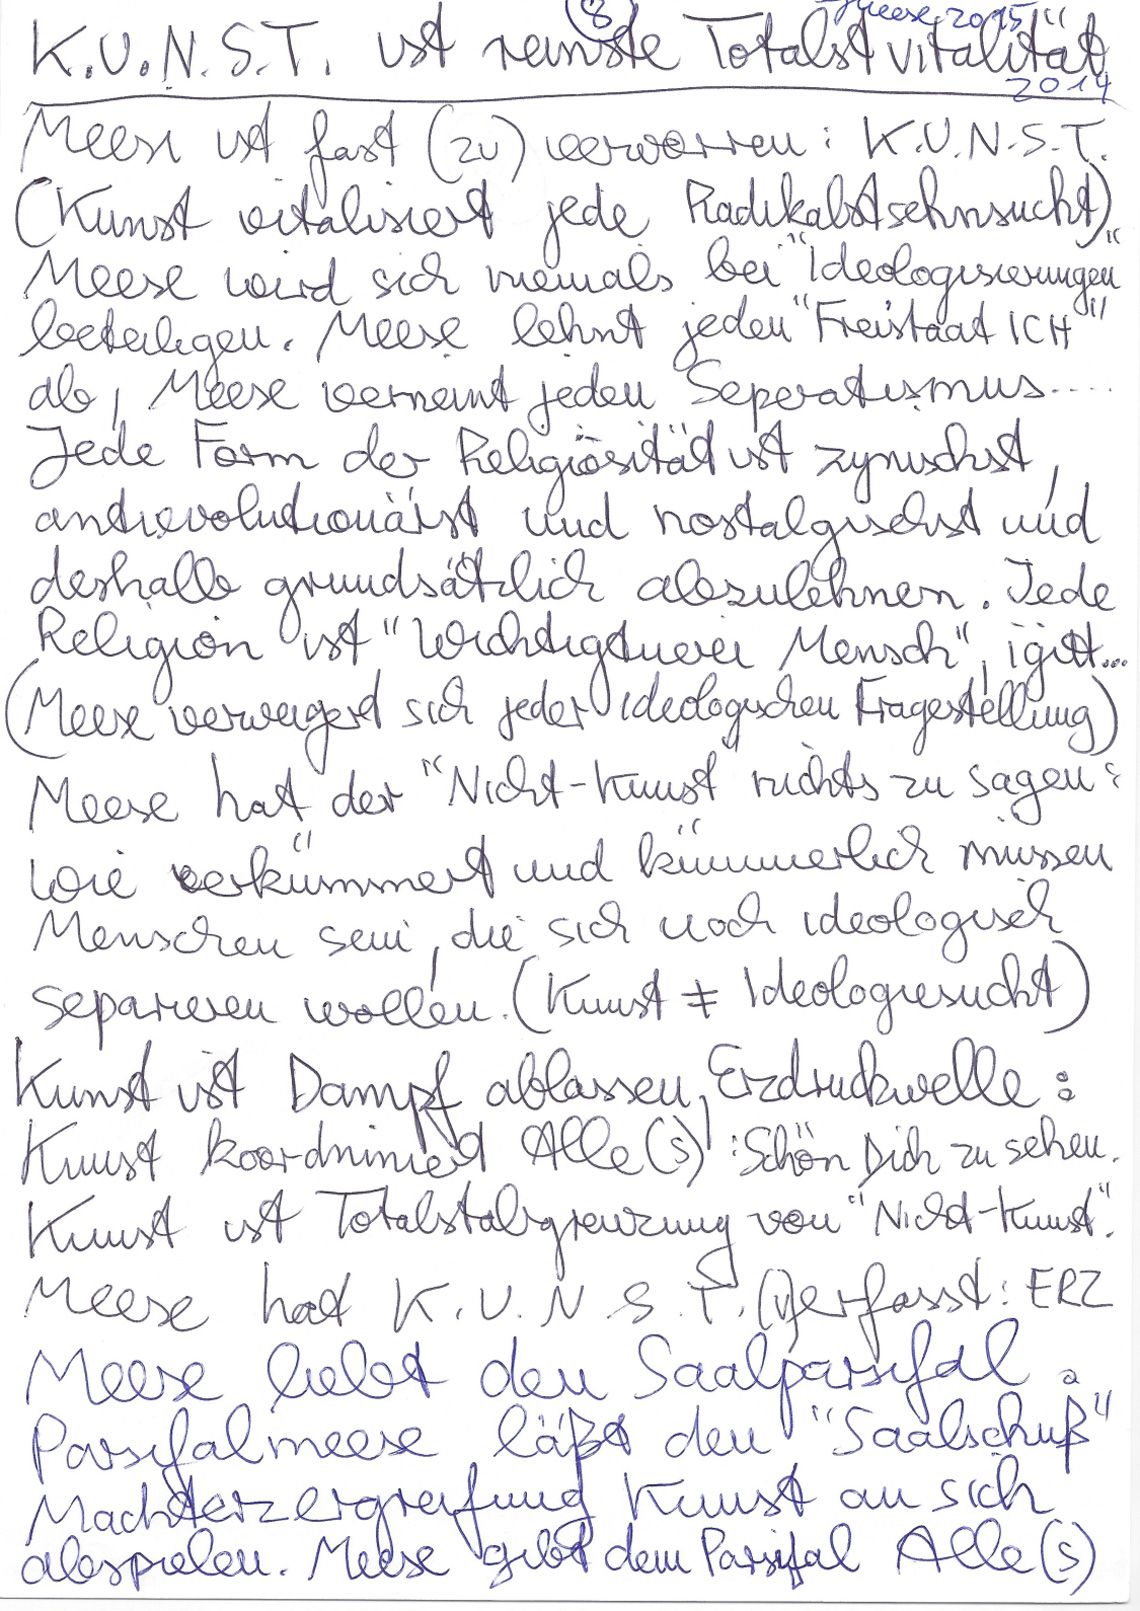 8 JMeese, 2015
K.U.N.S.T. ist reinste Totalstvitalität
2014
Meese ist fast (zu) verworren: K.U.N.S.T.
(Kunst vitalisiert jede Radikalstsehnsucht)
Meese wird sich niemals bei "Ideologisierungen"
beteiligen. Meese lehnt jeden "Freistaat ICH"
ab, Meese verneint jeden Seperatismus....
Jede Form der Religiösität ist zynischst,
antirevolutionärst und nostalgischst und
deshalb grundsätzlich abzulehnen. Jede
Religion ist "Wichtigtuerei Mensch", igitt...
(Meese verweigert sich jeder ideologischen Fragestellung)
Meese hat der "Nicht-Kunst" nichts zu sagen:
Wie verkümmert und kümmerlich müssen
Menschen sein, die sich noch ideologisch
separieren wollen. (Kunst ≠ Ideologiesucht)
Kunst ist Dampf ablassen, Erzdruckwelle:
Kunst koordniniert Alle(s): Schön Dich zu sehen.
Kunst ist Totalstabgrenzung von "Nicht-Kunst".
Meese hat K.U.N.S.T. (v)erfasst: ERZ
Meese liebt den Saalparsifal:
Parsifalmeese läßt den "Saalschuß"
Machterzergreifung Kunst an sich
abspielen. Meese gibt dem Parsifal Alle(s)